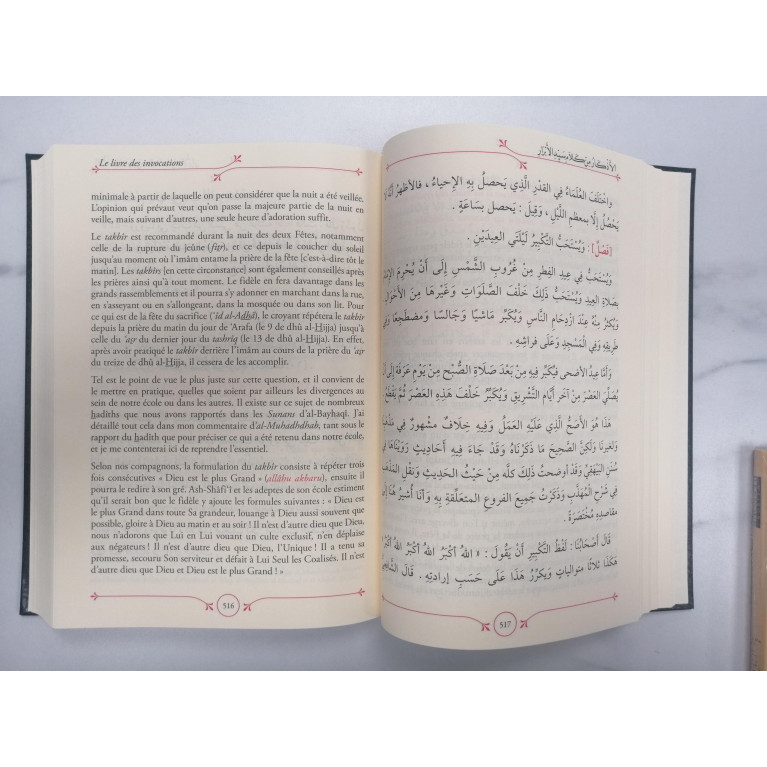 Le livre des invocations
minimale à partir de laquelle on peut considérer que la nuit a été veillée.
L'opinion qui prévaut veut qu'on passe la majeure partie de la nuit en
veille, mais suivant d'autres, une seule heure d'adoration suffit.
Le takbîr est recommandé durant la nuit des deux Fêtes, notamment
celle de la rupture du jeûne (fiṭr), et ce depuis le coucher du soleil
jusqu'au moment où l'imâm entame la prière de la fête [c'est-à-dire tôt le
matin]. Les takbîrs [en cette circonstance] sont également conseillés après
les prières ainsi qu'à tout moment. Le fidèle en fera davantage dans les
grands rassemblements et il pourra s'y adonner en marchant dans la rue,
en s'asseyant ou en s'allongeant, dans la mosquée ou dans son lit. Pour
ce qui est de la fête du sacrifice ('îd al-Adhâ), le croyant tépétera le takbîr
depuis la prière du matin du jour de 'Arafa (le 9 de dhû al-Hijja) jusqu'à
celle du 'aṣr du dernier jour de tashrîq (le 13 de dhû al-Hijja). En effet,
après avoir pratiqué le takbîr derrière l'imâm au cours de la prière du 'aṣr
du treize de dhû al-Hijja, il cessera de les accomplir.
Tel est le point de vue le plus juste sur cette question, et il convient de
le mettre en pratique, quelles que soient par ailleurs les divergences au
sein de notre école ou dans les autres. Il existe sur ce sujet de nombreux
hadîths que nous avons rapportés dans les Sunans d'al-Bayhaqî. J'ai
détaillé tout cela dans mon commentaire d'al-Muhadhdhab, tant sous le
rapport du hadîth que pour préciser ce qui a été retenu dans notre école,
et je me contenterai ici de reprendre l'essentiel.
Selon nos compagnons, la formulation du takbîr consiste à tépéter trois
fois consécutives « Dieu est le plus Grand » (allâhu akbaru), ensuite il
pourra le redire à son gré. Ash-Shâfi'î et les adeptes de son école estiment
qu'il serait bon que le fidèle y ajoute les formules suivantes : « Dieu est
le plus Grand dans toute Sa grandeur, louange à Dieu aussi souvent que
possible, gloire à Dieu au matin et au soir ! Il n'est d'autre dieu que Dieu,
nous n'adorons que Lui en Lui vouant un culte exclusif, n'en déplaise
aux négateurs ! Il n'est d'autre dieu que Dieu, l'Unique ! Il a tenu sa
promesse, secouru Son serviteur et défait à Lui Seul les Coalisés. Il n'est
d'autre dieu que Dieu et Dieu est le plus Grand ! »
516
الأذكار من كلام سيد الأبرار
واخْتَلَفَ العُلَمَاءُ فِي القَدْرِ الَّذِي يَحصلُ بِهِ الإحياءُ ، فالأظهرُ أنَّهُ لَا
يَحْصُلُ إلَّا بمعظمِ اللَّيْلِ ، وَقِيلَ : يَحصل بسَاعَةٍ .
[فَصْلٌ] : وَيُسْتَحَبُّ التَّكْبِيرُ لَيْلَتَي العِيدَيْنِ .
وَيُسْتَحَبُّ فِي عِيدِ الفِطْرِ مِنْ غُرُوبِ الشَّمْسِ إِلَى أَنْ يُحْرِمَ الإمَامُ
بصَلَاةِ العِيدِ وَيُسْتَحَبُّ ذَلِكَ خَلْفَ الصَّلَوَاتِ وَغَيْرِهَا مِنَ الأحْوَالِ
وَيُكثرُ مِنْهُ عِنْدَ ازْدِحَامِ النَّاسِ وَيُكَبِّرُ مَاشيًا وَجَالسًا وَمضطجعًا وَفِي
طَرِيقِهِ وَفِي الْمَسْجِدِ وَعَلَى فراشِهِ .
وَأَمَّا عِيدُ الأضحى فَيُكَبِّرُ فِيهِ مِنْ بَعْدِ صَلَاةِ الصُّبْحِ مِنْ يَوْمِ عَرَفَةَ إِلَى أَنْ
يُصَلِّيَ العَصْرَ مِنْ آخرِ أَيَّامِ التَّشْرِيقِ وَيُكَبِّرُ خَلْفَ هَذِهِ العَصْرِ ثُمَّ يَقْطَعُ
هَذَا هُوَ الأَصَحُّ الَّذِي عَلَيْهِ العَمَلُ وَفِيهِ خِلَافٌ مشهُورٌ فِي مَذْهَبِنَا
وَلغيرِنَا وَلَكنَّ الصَّحِيحَ مَا ذَكَرْنَاهُ وَقَدْ جَاءَ فِيهِ أحَادِيثُ رَوَيْنَاهَا فِي
سُنَنِ البَيْهَقِيِّ وَقَدْ أوضحتُ ذَلِكَ كلَّه مِنْ حَيْثُ الحَدِيثِ وَنَقْلِ المَذْهَبِ
فِي شَرْحِ الْمُهَذَّبِ وَذَكَرْتُ جَمِيعَ الفروعِ المتعَلِّقةِ بِهِ وَأَنَا أُشيرُ هُنَا إِلَى
مَقَاصِدِهِ مُخْتَصَرَةً .
قَالَ أَصْحَابُنَا : لَفْظُ التَّكْبِيرِ أَنْ يَقُولَ : « اللهُ أكْبَرُ اللهُ أكْبَرُ اللهُ أكْبَرُ
هَكَذَا ثلاثًا متوالياتٍ وَيكرِّرُ هَذَا عَلَى حَسَبِ إرادتِهِ . قَالَ الشَّافِعِيُّ
517